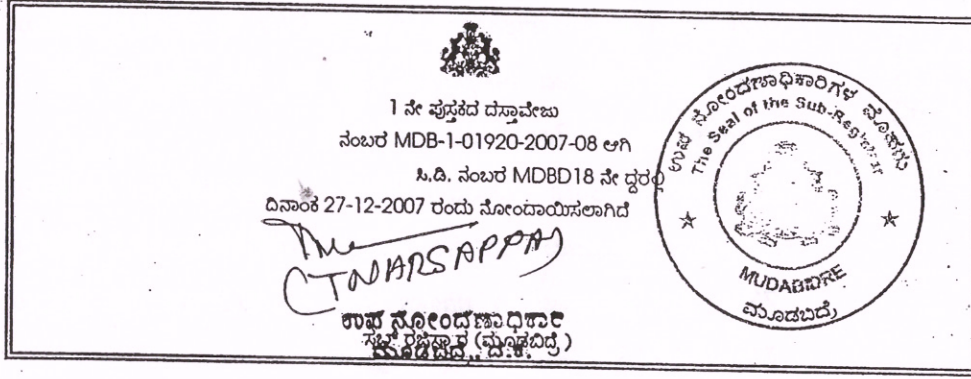 1 ನೇ ಪುಸ್ತಕದ ದಸ್ತಾವೇಜು
ನಂಬರ MDB-1-01920-2007-08 ಆಗಿ
ಸಿ.ಡಿ. ನಂಬರ MDBD18 ನೇ ದ್ದರಲ್ಲಿ
ದಿನಾಂಕ 27-12-2007 ರಂದು ನೋಂದಾಯಿಸಲಾಗಿದೆ
(T NARSAPPA)
ಉಪ ನೋಂದಣಾಧಿಕಾರಿ
ಸಬ್ ರಜಿಸ್ಟ್ರಾರ (ಮೂಡಬಿದ್ರೆ)
ಮೂಡಬಿದ್ರೆ, ದ.ಕ.
ಉಪ ನೋಂದಣಾಧಿಕಾರಿಗಳ ಮೊಹರು
The Seal of the Sub-Registrar
MUDABIDRE
ಮೂಡಬಿದ್ರೆ